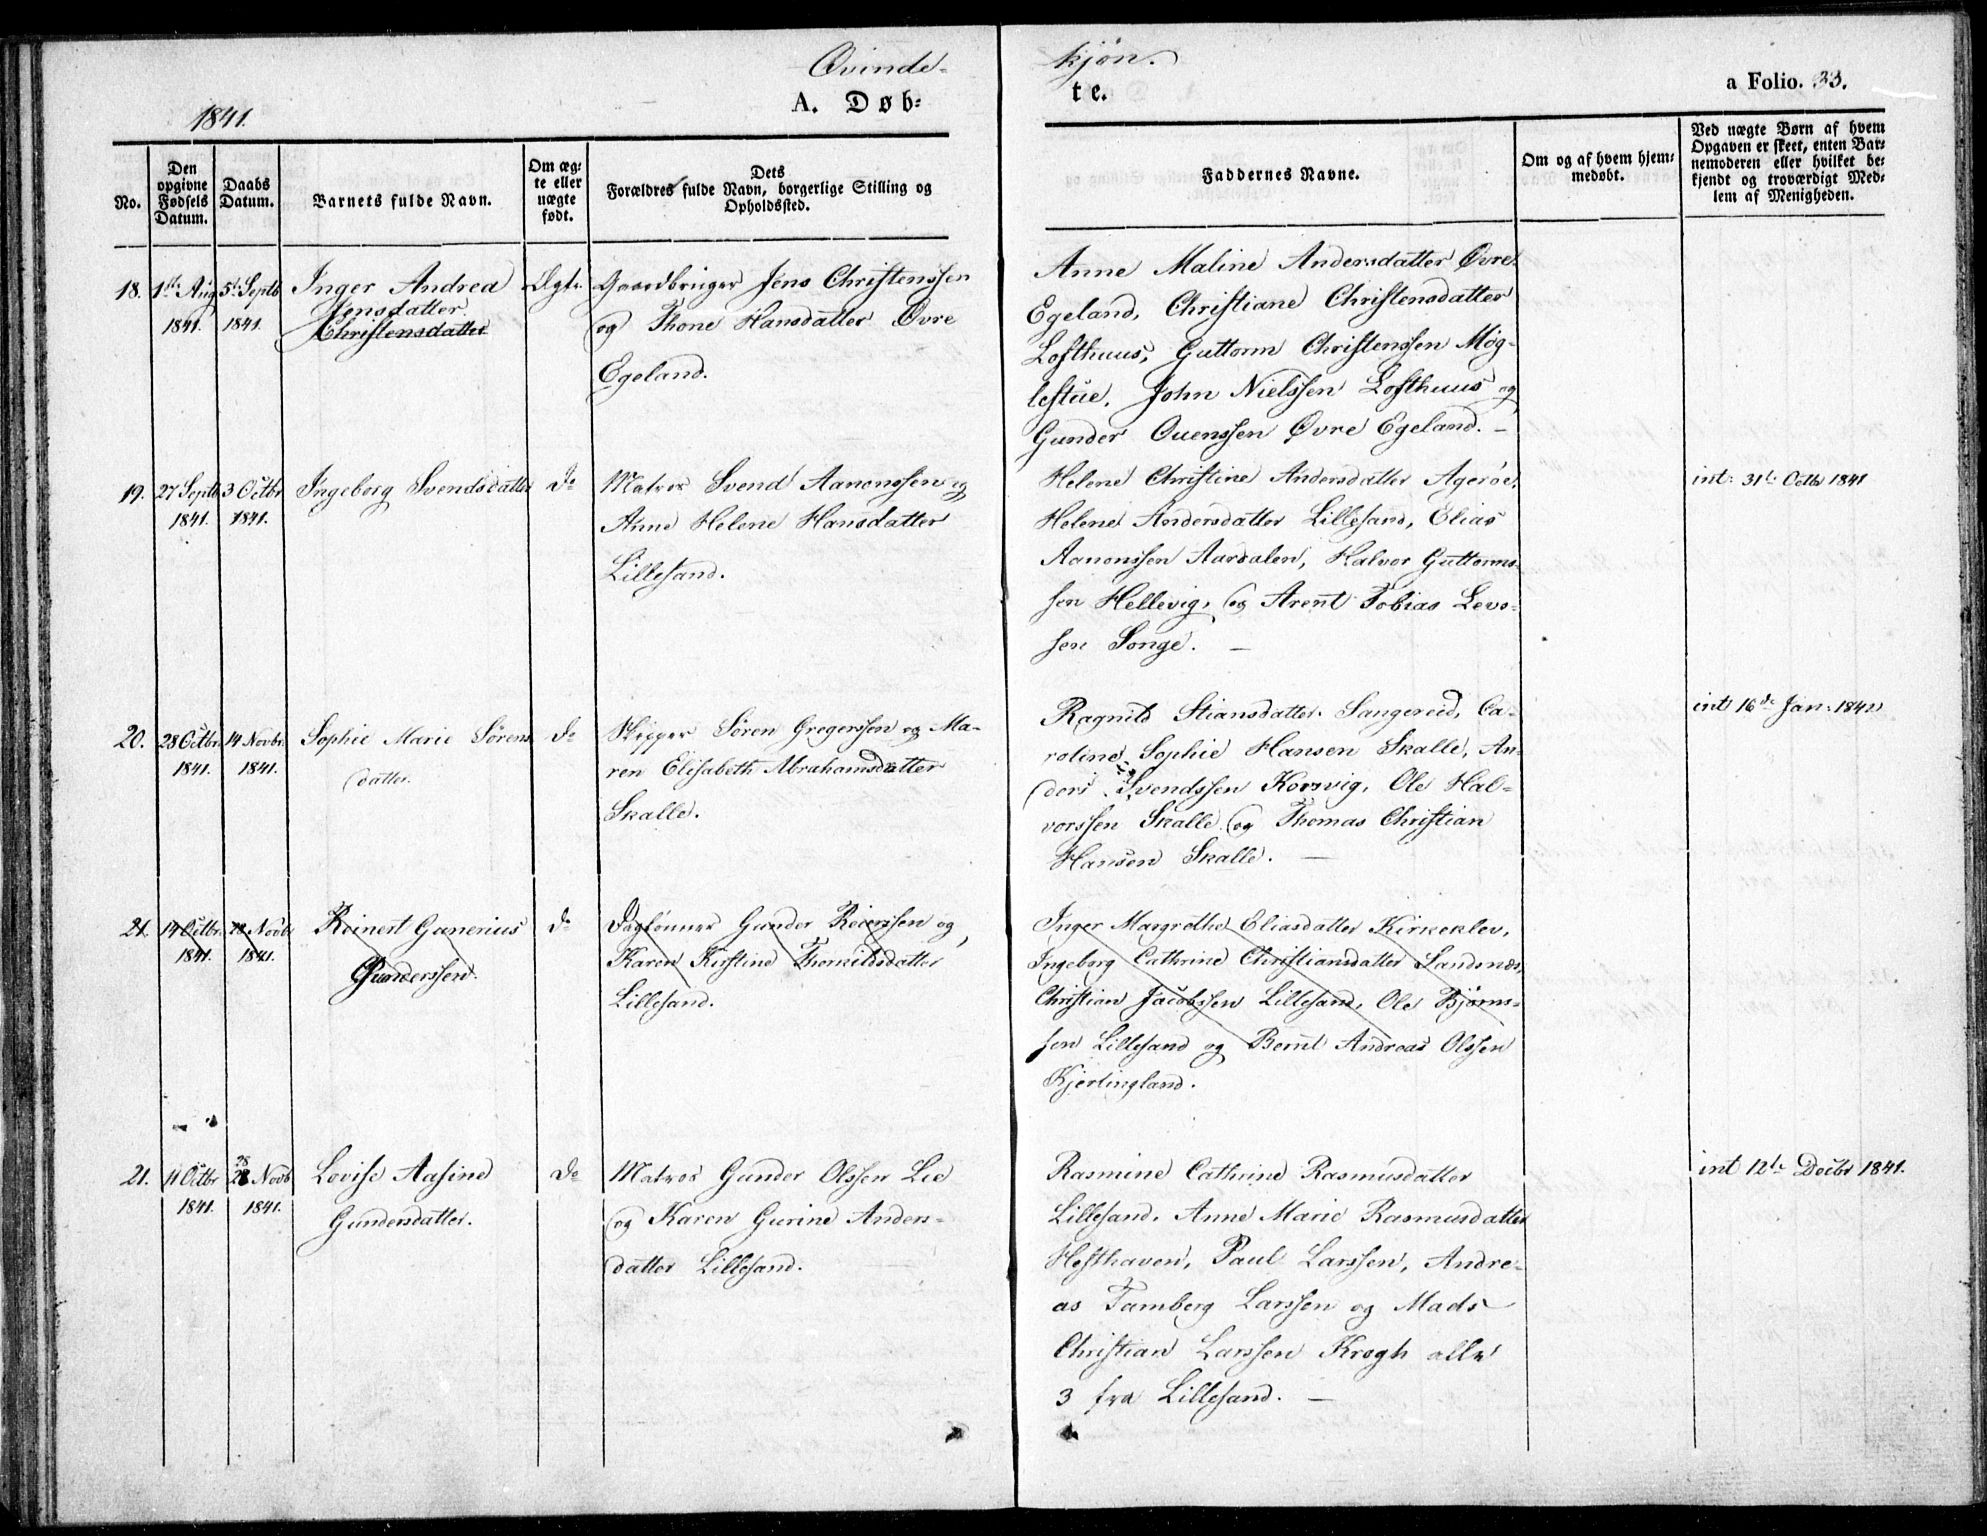 Qvinde-
kjøn.
1841.
A. Døb-
te.
a Folio. 33.
No.
Den opgivne Fødsels Datum.
Daabs Datum.
Barnets fulde Navn.
Om ægte eller nægte født.
Dets Forældres fulde Navn, borgerlige Stilling og Opholdssted.
Faddernes Navne.
Om og af hvem hjemmedøbt.
Ved nægte Børn af hvem Opgaven er skeet, enten Barnemoderen eller hvilket bekjendt og troværdigt Medlem af Menigheden.
18.
1ste Aug
1841.
5te Septb
1841.
Inger Andrea
Jensdatter
Christensdatter
Ægte
Gaardbruger Jens Christenssen
og Thone Hansdatter Øvre
Egeland.
Anne Maline Andersdatter Øvre
Egeland, Christiane Christensdatter
Lofthuus, Guttorm Christenssen Møg-
lestue, John Nielssen Lofthuus og
Gunder Ouenssen Øvre Egeland. -
19.
27 Septb
1841.
3 Octbr
1841.
Ingeborg Svendsdatter
do
Matros Svend Aanonssen og
Anne Helene Hansdatter
Lillesand.
Helene Christine Andersdatter Agerøe,
Helene Andersdatter Lillesand, Elias
Aanonssen Aardalen, Halvor Guttorms-
sen Hellevig, og Arent Tobias Levs-
sen Songe. -
int: 31te Octbr 1841
20.
28 Octbr
1841.
14 Novbr
1841.
Sophie Marie Sørens
datter.
do
Skipper Søren Gregerssen og Ma-
ren Elisabeth Abrahamsdatter
Skalle.
Ragnild Stiansdatter Sangereid, Ca-
roline Sophie Hansen Skalle, An-
ders Svendssen Korsvig, Ole Hal-
vorssen Skalle og Thomas Christian
Hansen Skalle. -
int 16de Jan: 1842
21.
14 Octbr
1841.
28 Novb
1841.
Reinert Gunerius
Gunderssen.
do
Daglønner Gunder Reierssen og
Karen Kirstine Thorkildsdatter
Lillesand.
Inger Margrethe Eliasdatter Kirkeklev,
Ingeborg Cathrine Christiansdatter Sandsnæs,
Christian Jacobssen Lillesand, Ole Bjørns-
sen Lillesand og Bernt Andreas Olssen
Kjerlingland.
21.
11 Octbr
1841.
28
Novb
1841.
Lovise Aasine
Gundersdatter.
do
Matros Gunder Olssen Lie
og Karen Gurine Anders-
datter Lillesand.
Rasmine Cathrine Rasmusdatter
Lillesand, Anne Marie Rasmusdatter
Hesthaven, Paul Larssen, Andre-
as Tamberg Larssen og Mads
Christian Larssen Krogh alle
3 fra Lillesand. -
int 12te Decbr 1841.